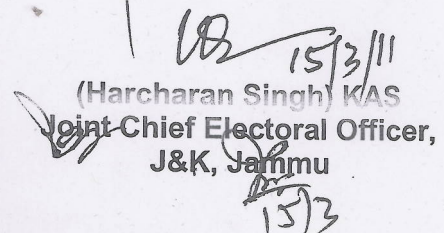 15/3/11
(Harcharan Singh) KAS
Joint Chief Electoral Officer,
J&K, Jammu
15/3